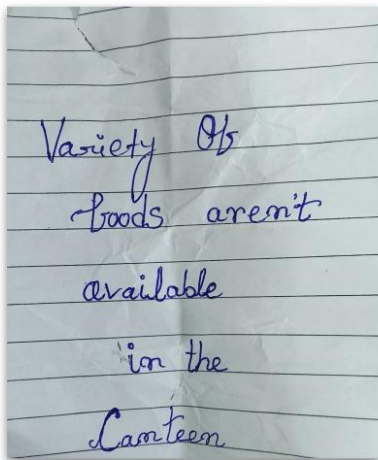 Variety Of
foods aren't
available
in the
Canteen